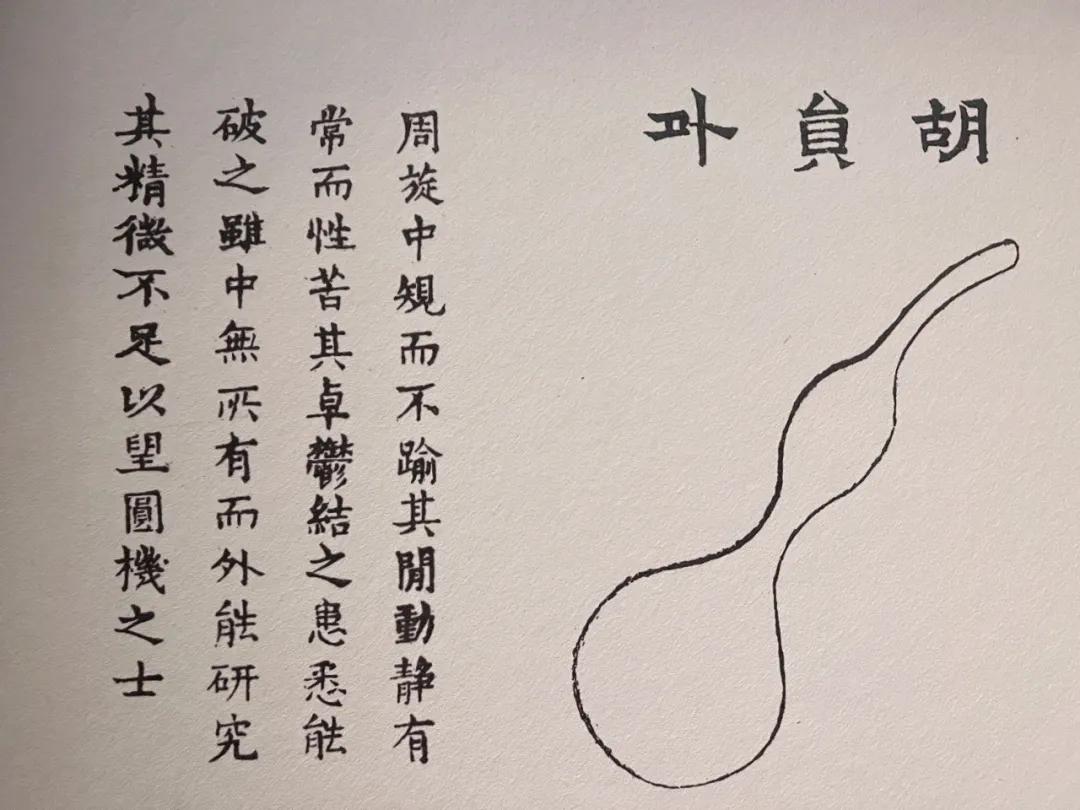 胡員外
周旋中規而不踰其閒動靜有
常而性苦其卓鬱結之患悉能
破之雖中無所有而外能研究
其精微不足以望圓機之士